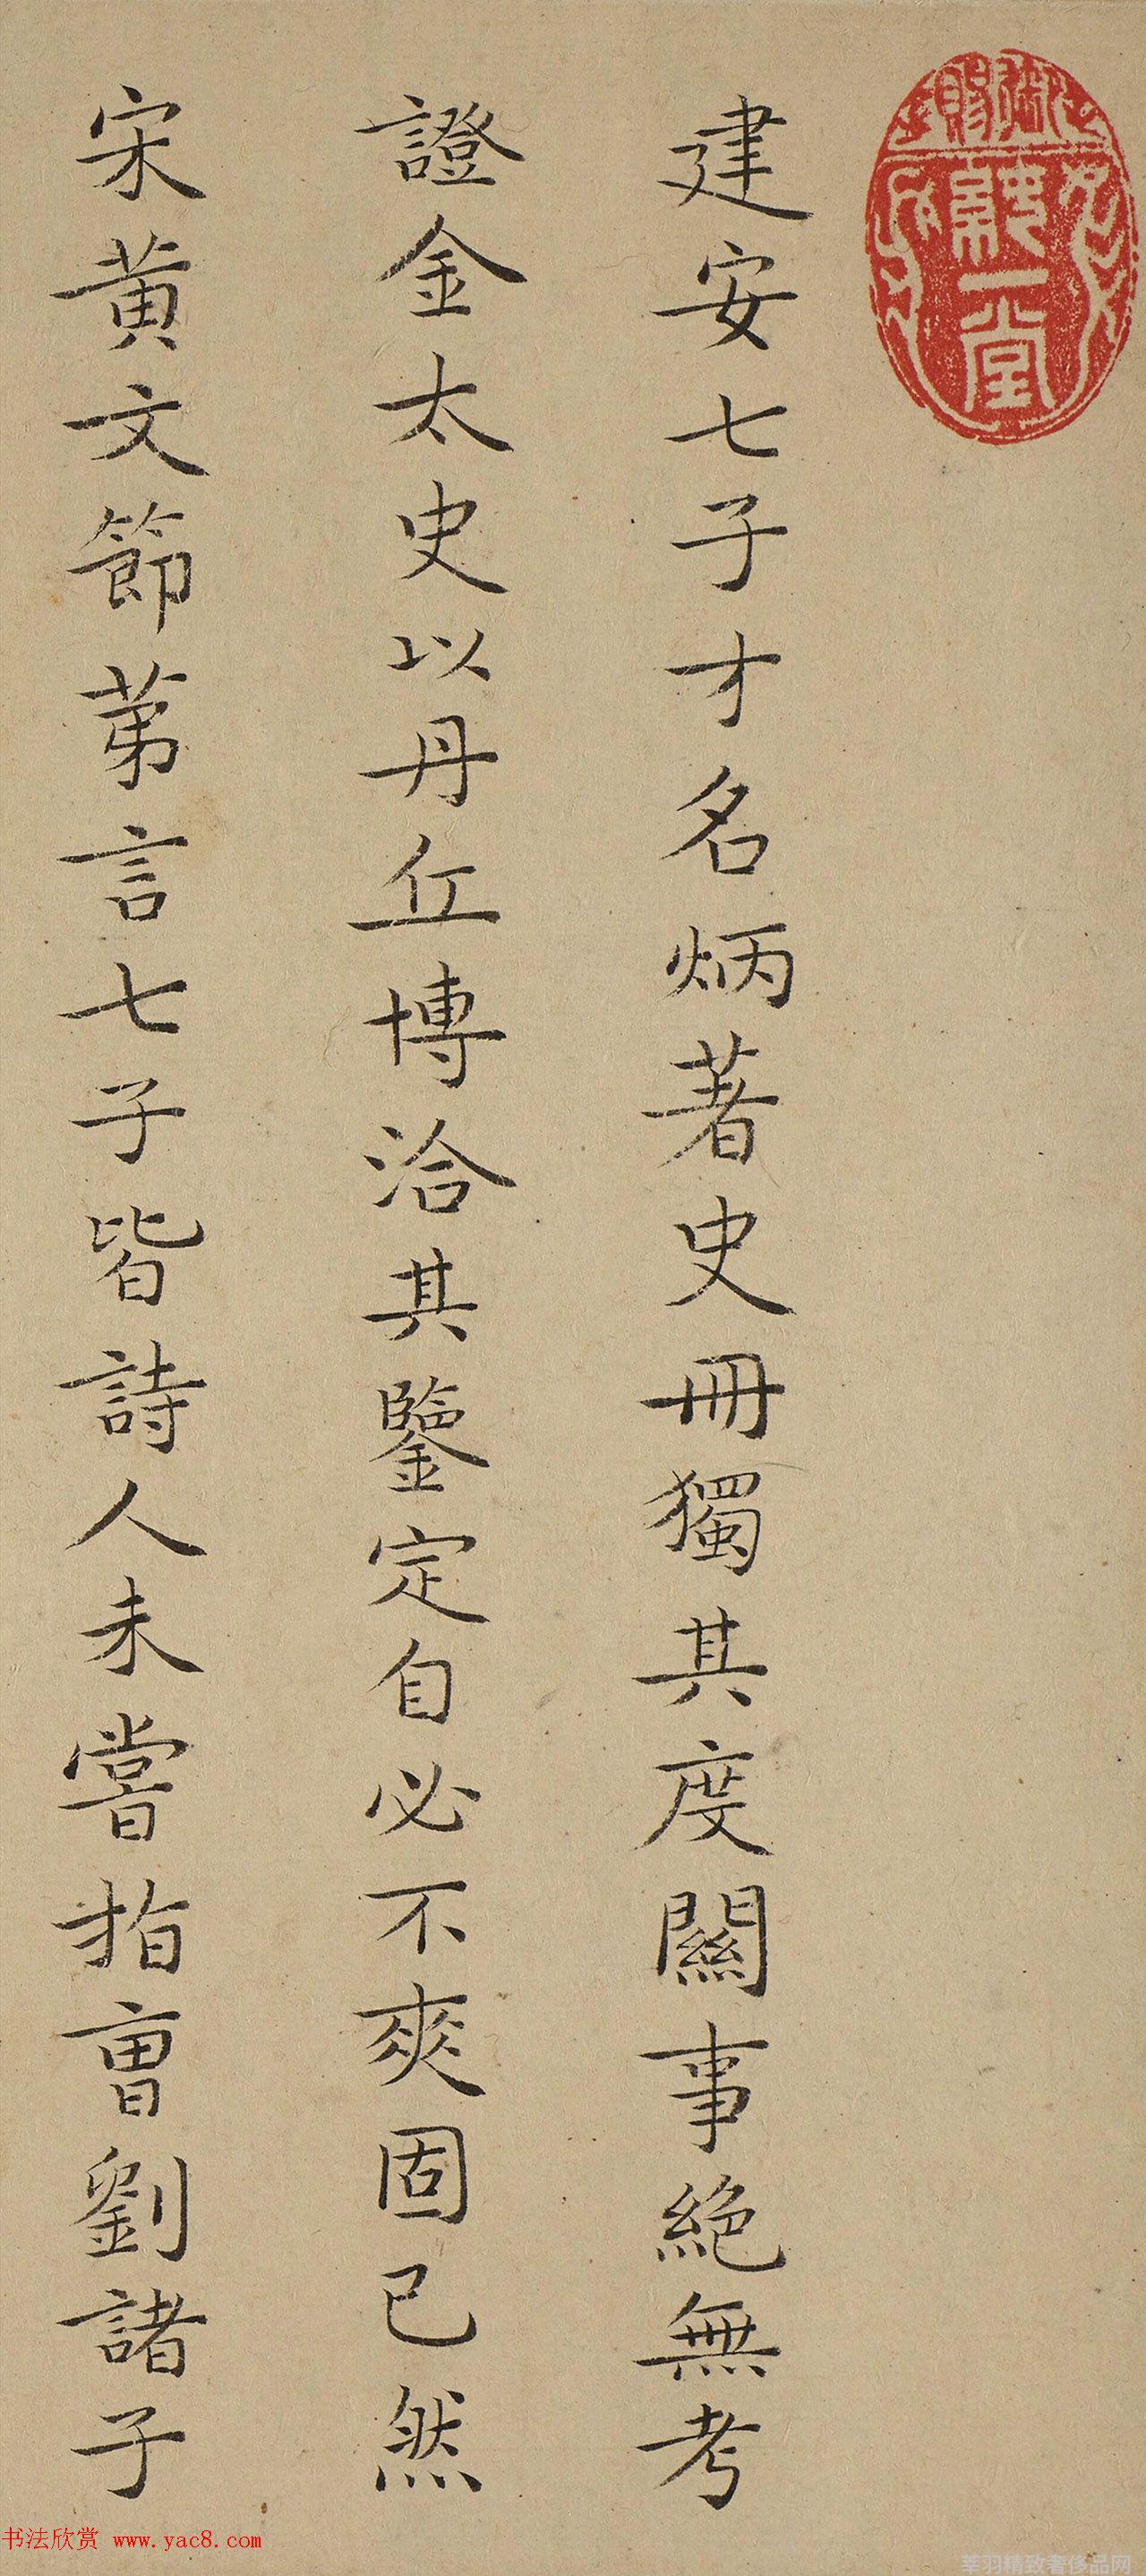 建安七子才名炳著史冊獨其度關事絕無考
證金太史以丹丘博洽其鑒定自必不爽固已然
宋黃文節苐言七子皆詩人未嘗指曹劉諸子
书法欣赏 www.yac8.com
莘羽精致奢侈品网